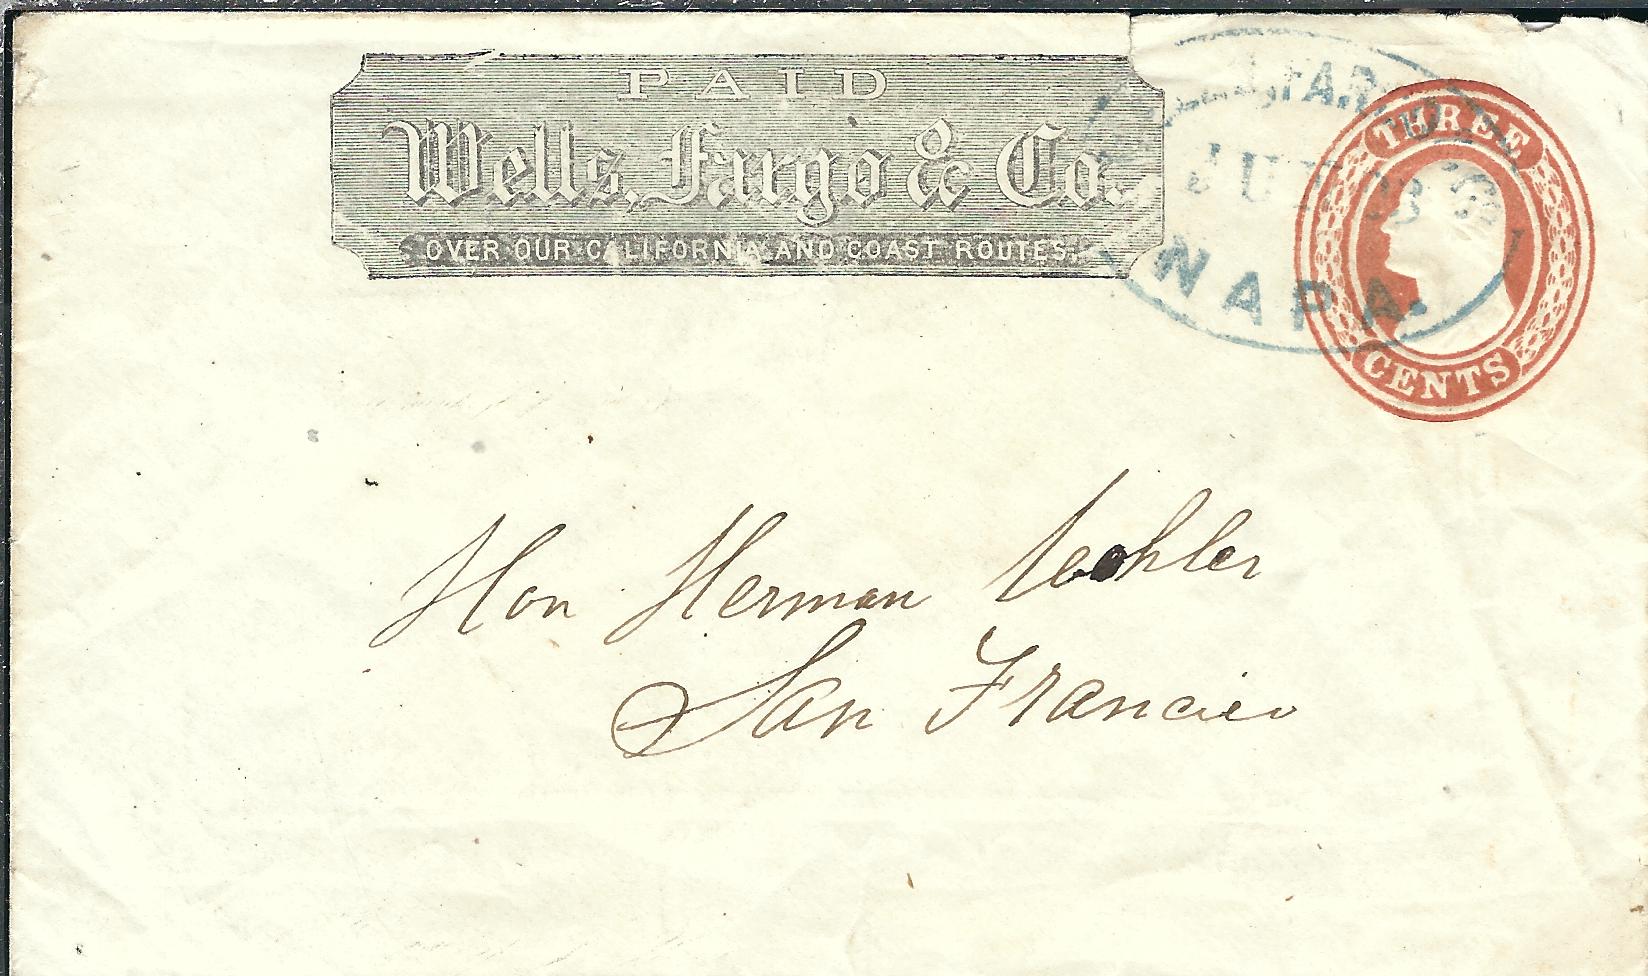 PAID
Wells, Fargo & Co.
OVER OUR CALIFORNIA AND COAST ROUTES.
FAR
NAPA.
THREE
CENTS
Hon Herman
San Francisco